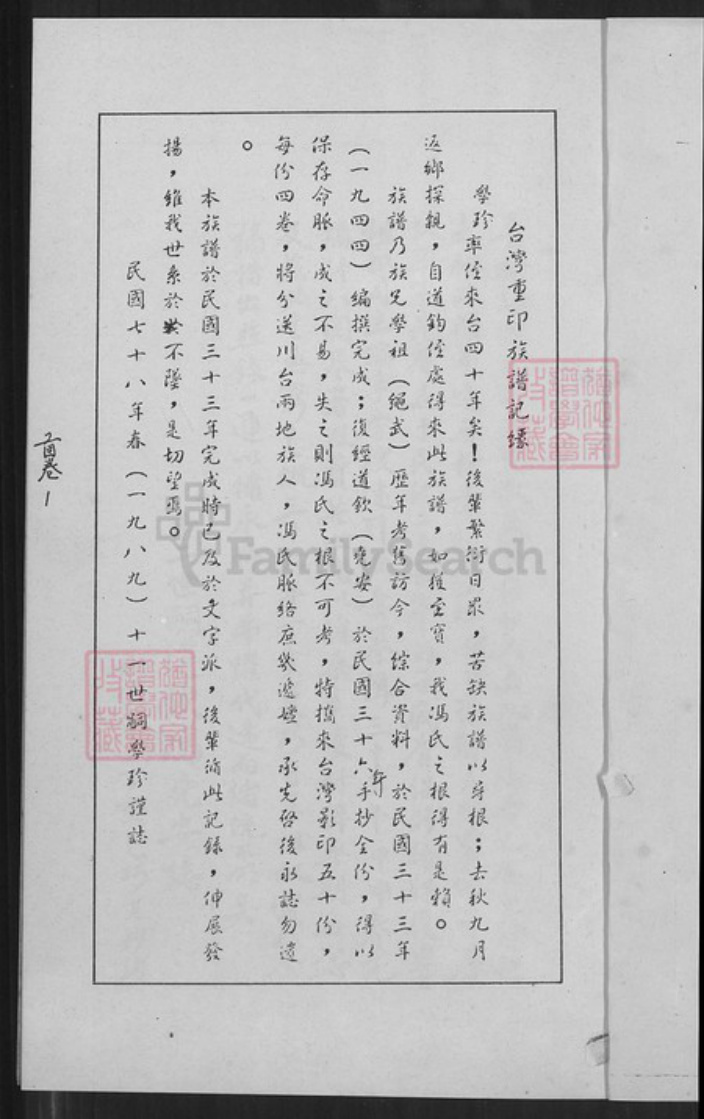 台灣重印族譜記緣
學珍率侄來台四十年矣！後輩繁衍日眾，苦缺族譜以尋根；去秋九月
返鄉探親，自道鈞侄處得來此族譜，如獲至寶，我馮氏之根得有是賴。
族譜乃族兄學祖（繩武）歷年考舊訪今，綜合資料，於民國三十三年
（一九四四）編撰完成；復經道欽（堯安）於民國三十六年手抄全份，得以
保存命脈，成之不易，失之則馮氏之根不可考，特攜來台灣影印五十份，
每份四卷，將分送川台兩地族人，馮氏脈絡庶幾遞嬗，承先啓後永誌勿遺
。
本族譜於民國三十三年完成時已及於文字派，後輩循此記錄，伸展發
揚，維我世系於不墜，是切望焉。
民國七十八年春（一九八九）十一世嗣學珍謹誌
首卷1
FamilySearch